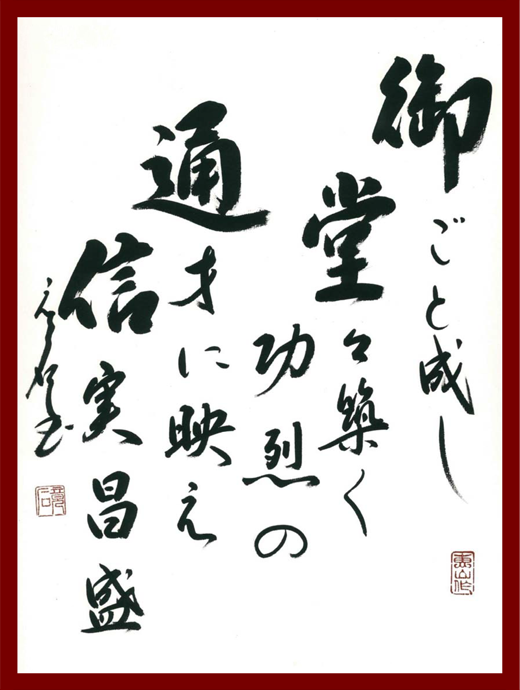 御ごと成し
堂々築く
功烈の
通才に映え
信実昌盛